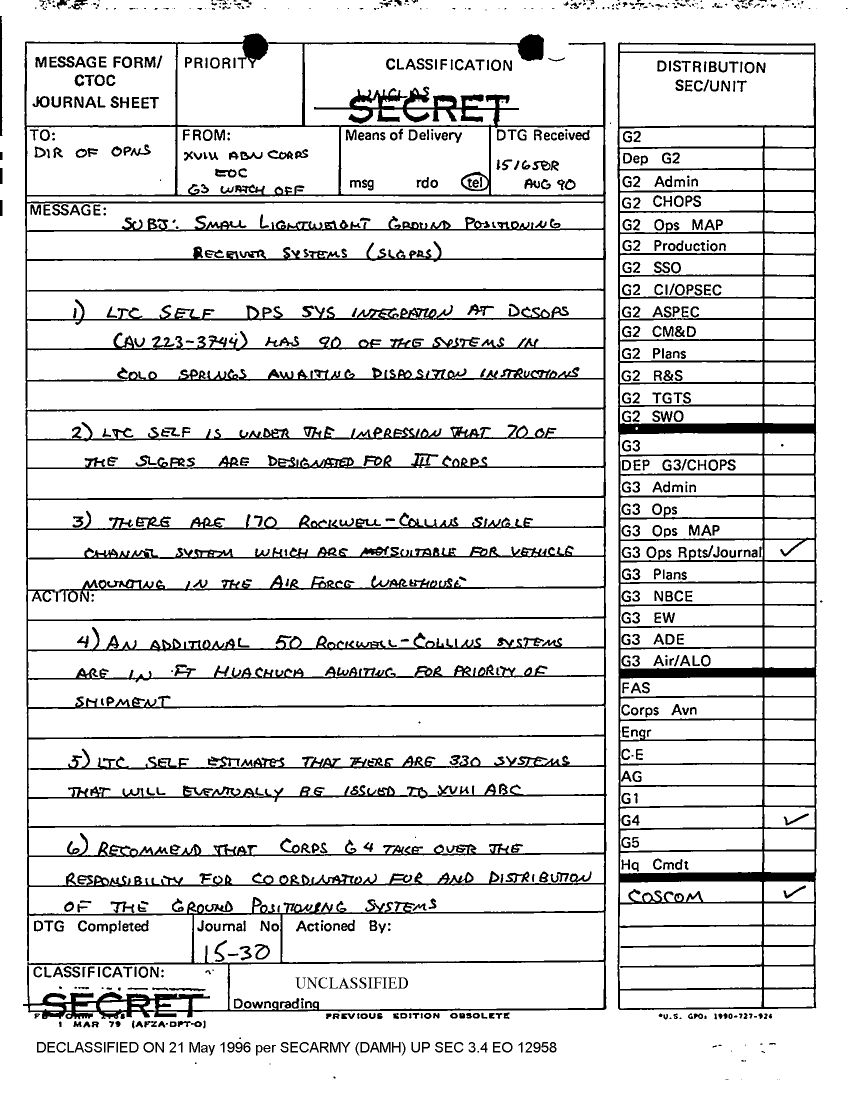 MESSAGE FORM/
CTOC
JOURNAL SHEET
PRIORITY
CLASSIFICATION
UNCLAS
SECRET
TO:
DIR OF OPNS
FROM:
XVIII ABN CORPS
EOC
G3 WATCH OFF
Means of Delivery
msg rdo tel
DTG Received
151650R
AUG 90
MESSAGE:
SUBJ: SMALL LIGHTWEIGHT GROUND POSITIONING
RECEIVER SYSTEMS (SLGPRS)
1) LTC SELF DPS SYS INTEGRATION AT DCSOPS
(AU 223-3744) HAS 90 OF THE SYSTEMS IN
COLO SPRINGS AWAITING DISPOSITION INSTRUCTIONS
2) LTC SELF IS UNDER THE IMPRESSION THAT 70 OF
THE SLGPRS ARE DESIGNATED FOR III CORPS
3) THERE ARE 170 ROCKWELL-COLLINS SINGLE
CHANNEL SYSTEM WHICH ARE SUITABLE FOR VEHICLE
MOUNTING IN THE AIR FORCE WAREHOUSE
ACTION:
4) AN ADDITIONAL 50 ROCKWELL-COLLINS SYSTEMS
ARE IN FT HUACHUCA AWAITING FOR PRIORITY OF
SHIPMENT
5) LTC SELF ESTIMATES THAT THERE ARE 330 SYSTEMS
THAT WILL EVENTUALLY BE ISSUED TO XVIII ABC
6) RECOMMEND THAT CORPS G4 TAKE OVER THE
RESPONSIBILITY FOR COORDINATION FOR AND DISTRIBUTION
OF THE GROUND POSITIONING SYSTEMS
DTG Completed
Journal No
15-30
Actioned By:
CLASSIFICATION:
SECRET
UNCLASSIFIED
Downgrading
1 MAR 79 (AFZA-DPT-O)
PREVIOUS EDITION OBSOLETE
DISTRIBUTION
SEC/UNIT
G2
Dep G2
G2 Admin
G2 CHOPS
G2 Ops MAP
G2 Production
G2 SSO
G2 CI/OPSEC
G2 ASPEC
G2 CM&D
G2 Plans
G2 R&S
G2 TGTS
G2 SWO
G3
DEP G3/CHOPS
G3 Admin
G3 Ops
G3 Ops MAP
G3 Ops Rpts/Journal ✓
G3 Plans
G3 NBCE
G3 EW
G3 ADE
G3 Air/ALO
FAS
Corps Avn
Engr
C-E
AG
G1
G4 ✓
G5
Hq Cmdt
COSCOM ✓
*U.S. GPO: 1990-727-924
DECLASSIFIED ON 21 May 1996 per SECARMY (DAMH) UP SEC 3.4 EO 12958